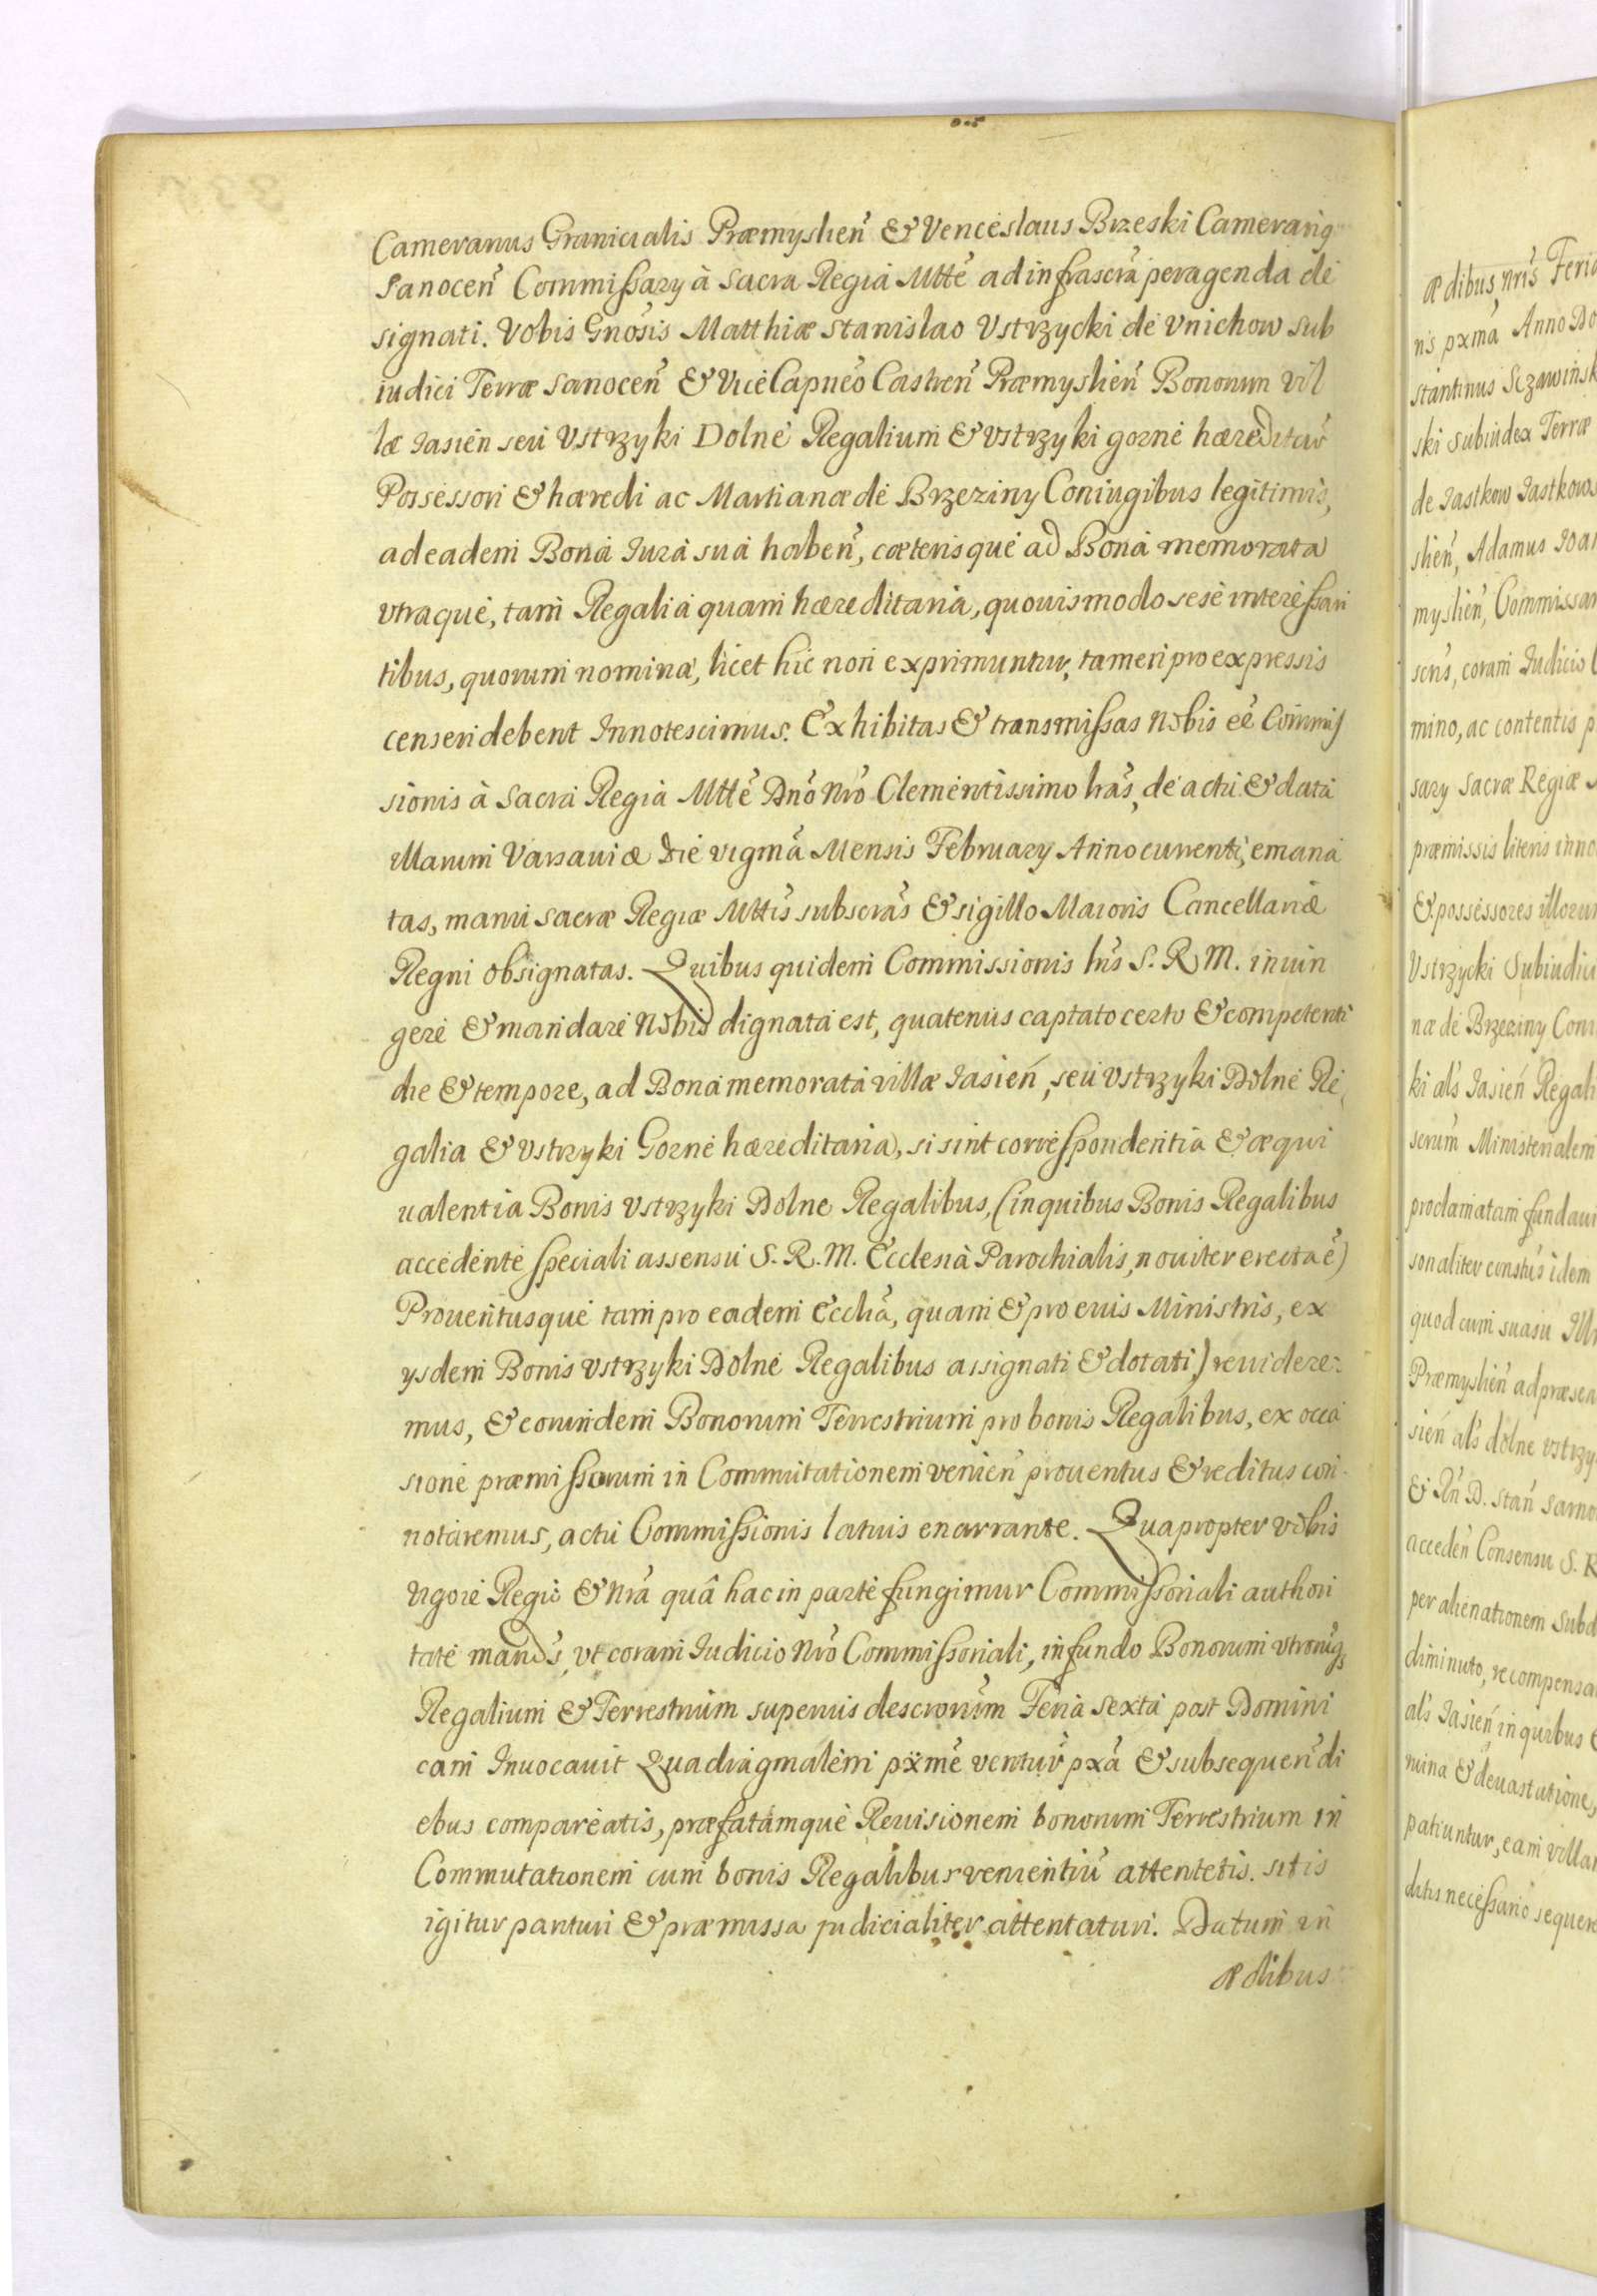 Cameranus Granicialis Præmyslien̄ & Venceslaus Brzeski Camerarig
Sanocen̄ Commissary à Sacra Regia Mtte ad infrascra peragenda de
signati. Vobis Gnosis Matthiæ Stanislao Vstrzycki de Vnichow sub
iudici Terræ Sanocen̄ & Vice Capneo Castren̄ Præmyslien̄ Bonorum Vil
læ Jasien seu Vstrzyki Dolne Regalium & Vstrzyki gorne hæreditar
Possessori & hæredi ac Martianæ de Brzeziny Coniugibus legitimis,
ad eadem Bona Jura sua haben̄, cæterisque ad Bona memorata
vtraque, tam Regalia quam hæreditaria, quouismodo sese interessan
tibus, quorum nomina, licet hic non exprimuntur, tamen pro expressis
censeri debent Innotescimus. Exhibitas & transmissas Nobis eē Commis
sionis à Sacra Regia Mtte Dno Nro Clementissimo lras, de actu & data
illarum Varsauiæ die vigma Mensis February Anno currenti, emana
tas, manu sacræ Regiæ Mttis subscras & sigillo Maioris Cancellariæ
Regni obsignatas. Quibus quidem Commissionis lris S. R. M. iniun
gere & mandare Nobis dignata est, quatenus captato certo & competenti
die & tempore, ad Bona memorata villæ Jasień, seu Vstrzyki Dolne Re
galia & Vstrzyki Gorne hæreditaria, si sint correspondentia & æqui
ualentia Bonis Vstrzyki Dolne Regalibus, (in quibus Bonis Regalibus
accedente speciali assensu S. R. M. Ecclesia Parochialis, nouiter erecta ē)
Prouentusque tam pro eadem Ecclia, quam & pro euis Ministris, ex
ysdem Bonis Vstrzyki Dolne Regalibus assignati & dotati,) reuidere:
mus, & eorundem Bonorum Terrestrium pro bonis Regalibus, ex occa
sione præmissorum in Commutationem venien̄ prouentus & reditus con
notaremus, actu Commissionis latuis enarrante. Quapropter vobis
vigore Regia & Nra quâ hac in parte fungimur Commissoriali authori
tate mandˢ, vt coram Judicio Nro Commissoriali, in fundo Bonorum vtrorüg
Regalium & Terrestrium superius descrorum Feria sexta post Domini
cam Inuocauit Quadragmalem pxme ventur pxa & subsequen̄ di
ebus compareatis, præfatamque Reuisionem bonorum Terrestrium in
Commutationem cum bonis Regalibus venientiū attentetis. sitis
igitur parituri & præmissa judicialiter attentaturi. Datum in
ædibus
ædibus nris Feria
nis pxma Anno Do
stantinus Sczawinsk
ski Subiudex Terræ
de Jastkow Jastkows
slien̄, Adamus Joa
myslien̄, Commissar
sens, coram Judicio
mino, ac contentis p
sary Sacræ Regiæ
præmissis literis inno
& possessores illorum
Vstrzycki Subiudici
næ de Brzeziny Coni
ki als Jasień Regali
serum Ministerialem
proclamatam fundaui
sonaliter constus idem
quod cum suasu Jllr
Præmyslien̄ ad præsen
sień als dolne vstrzy
& Gn D. Stan̄ Sarno
acceden̄ Consensu S. R
per alienationem Subd
diminuto, recompensa
als Jasień in quibus
ruina & deuastatione,
patiuntur, eam villam
ditis necessario sequere